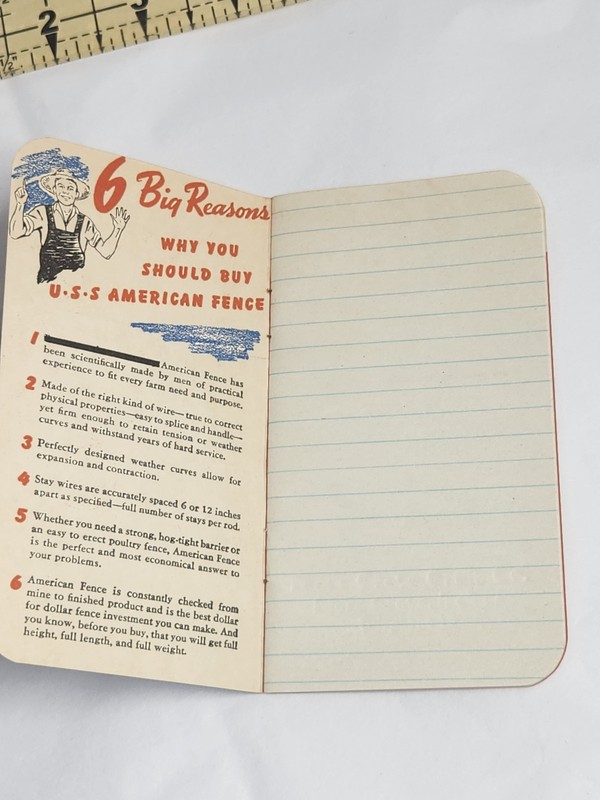 2
3
1/2"
6 Big Reasons
WHY YOU
SHOULD BUY
U·S·S AMERICAN FENCE
1 American Fence has
been scientifically made by men of practical
experience to fit every farm need and purpose.
2 Made of the right kind of wire—true to correct
physical properties—easy to splice and handle—
yet firm enough to retain tension or weather
curves and withstand years of hard service.
3 Perfectly designed weather curves allow for
expansion and contraction.
4 Stay wires are accurately spaced 6 or 12 inches
apart as specified—full number of stays per rod.
5 Whether you need a strong, hog-tight barrier or
an easy to erect poultry fence, American Fence
is the perfect and most economical answer to
your problems.
6 American Fence is constantly checked from
mine to finished product and is the best dollar
for dollar fence investment you can make. And
you know, before you buy, that you will get full
height, full length, and full weight.